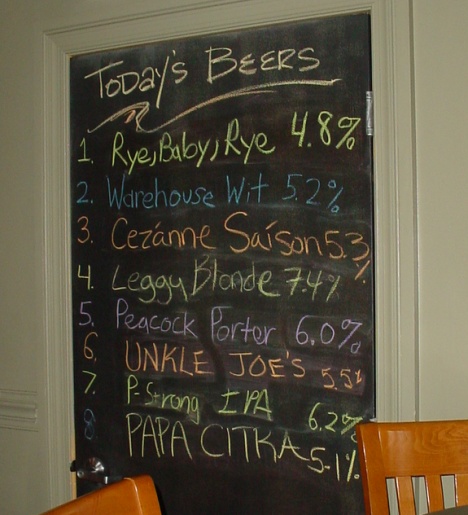 Today's Beers
1. Rye, Baby, Rye 4.8%
2. Warehouse Wit 5.2%
3. Cezánne Saíson 5.3%
4. Leggy Blonde 7.4%
5. Peacock Porter 6.0%
6. UNKLE JOE'S 5.5%
7. P-Strong IPA 6.2%
8 PAPA CITRA 5.1%